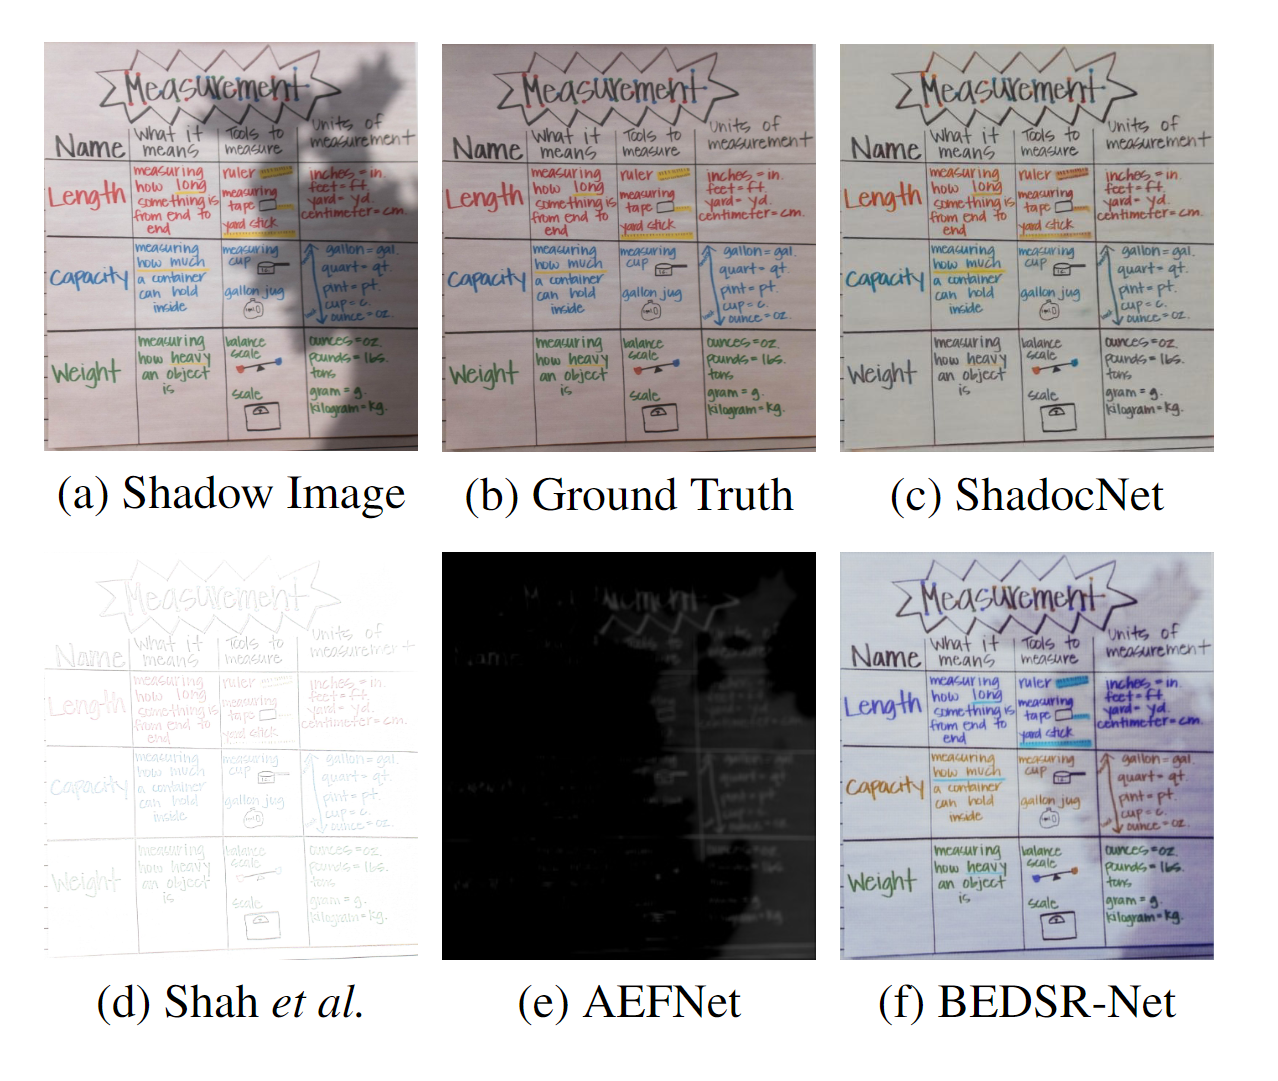 Measurement
Name
What it means
Tools to measure
Units of measurement
Length
measuring
how long
something is
from end to
end
ruler
measuring
tape
yard stick
inches = in.
feet = ft.
yard = yd.
centimeter = cm.
Capacity
measuring
how much
a container
can hold
inside
measuring
cup
gallon jug
gallon = gal.
quart = qt.
pint = pt.
cup = c.
ounce = oz.
Weight
measuring
how heavy
an object
is
balance
scale
scale
ounces = oz.
pounds = lbs.
tons
gram = g.
kilogram = kg.
(a) Shadow Image
Measurement
Name
What it means
Tools to measure
Units of measurement
Length
measuring
how long
something is
from end to
end
ruler
measuring
tape
yard stick
inches = in.
feet = ft.
yard = yd.
centimeter = cm.
Capacity
measuring
how much
a container
can hold
inside
measuring
cup
gallon jug
gallon = gal.
quart = qt.
pint = pt.
cup = c.
ounce = oz.
Weight
measuring
how heavy
an object
is
balance
scale
scale
ounces = oz.
pounds = lbs.
tons
gram = g.
kilogram = kg.
(b) Ground Truth
Measurement
Name
What it means
Tools to measure
Units of measurement
Length
measuring
how long
something is
from end to
end
ruler
measuring
tape
yard stick
inches = in.
feet = ft.
yard = yd.
centimeter = cm.
Capacity
measuring
how much
a container
can hold
inside
measuring
cup
gallon jug
gallon = gal.
quart = qt.
pint = pt.
cup = c.
ounce = oz.
Weight
measuring
how heavy
an object
is
balance
scale
scale
ounces = oz.
pounds = lbs.
tons
gram = g.
kilogram = kg.
(c) ShadocNet
Measurement
Name
What it means
Tools to measure
Units of measurement
Length
measuring
how long
something is
from end to
end
ruler
measuring
tape
yard stick
inches = in.
feet = ft.
yard = yd.
centimeter = cm.
Capacity
measuring
how much
a container
can hold
inside
measuring
cup
gallon jug
gallon = gal.
quart = qt.
pint = pt.
cup = c.
ounce = oz.
Weight
measuring
how heavy
an object
is
balance
scale
scale
ounces = oz.
pounds = lbs.
tons
gram = g.
kilogram = kg.
(d) Shah et al.
(e) AEFNet
Measurement
Name
What it means
Tools to measure
Units of measurement
Length
measuring
how long
something is
from end to
end
ruler
measuring
tape
yard stick
inches = in.
feet = ft.
yard = yd.
centimeter = cm.
Capacity
measuring
how much
a container
can hold
inside
measuring
cup
gallon jug
gallon = gal.
quart = qt.
pint = pt.
cup = c.
ounce = oz.
Weight
measuring
how heavy
an object
is
balance
scale
scale
ounces = oz.
pounds = lbs.
tons
gram = g.
kilogram = kg.
(f) BEDSR-Net